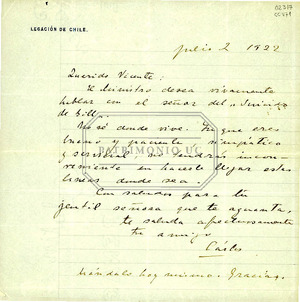 LEGACIÓN DE CHILE.
julio 2 1922
Querido Vicente:
El Ministro desea vivamente
hablar con el señor del
de Gilla.
No sé donde vive. Tu que eres
bueno y paciente simpático
y servicial, no tendrás incon-
veniente en hacerle llegar estas
líneas donde sea.
Con saludos para tu
gentil señora que te aguanta,
te saluda afectuosamente
tu amigo
Carlos
Mándalo hoy mismo. Gracias.
PATRIMONIO UC